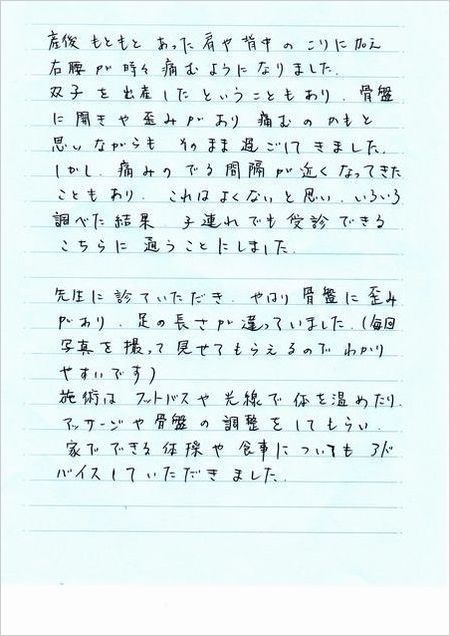 産後 もともと あった 肩や 背中 の こりに 加え
右腰が 時々 痛むようになりました.
双子 を 出産したということもあり, 骨盤
に 開きや 歪みが あり 痛むのかもと
思いながらも そのまま 過ごしてきました.
しかし, 痛みの でる 間隔が 近くなってきた
こともあり, これはよくないと思い, いろいろ
調べた 結果 子連れでも 受診できる
こちらに 通うことにしました.
先生に 診ていただき, やはり 骨盤に 歪み
があり, 足の長さが 違っていました.(毎回
写真を 撮って 見せてもらえるので わかり
やすいです)
施術は フットバスや 光線で 体を温めたり,
マッサージや 骨盤の 調整をしてもらい,
家で できる 体操や 食事についても アド
バイスしていただきました.